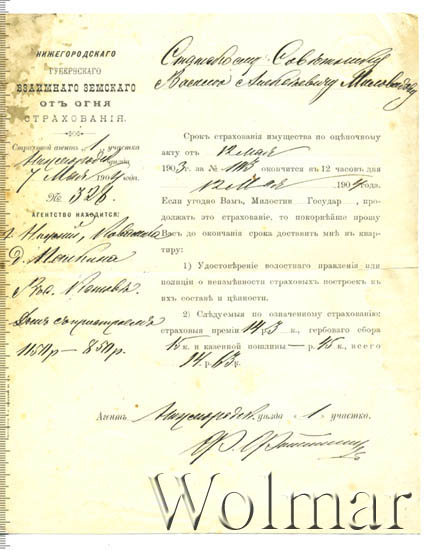 НИЖЕГОРОДСКАГО
ГУБЕРНСКАГО
ВЗАИМНАГО ЗЕМСКАГО
ОТЪ ОГНЯ
СТРАХОВАНІЯ.
Страховой агентъ 1 участка
уѣзда
7 Мая 1904 года.
№ 328.
АГЕНТСТВО НАХОДИТСЯ:
1150 р — 850 р.
Статскому Совѣтнику
Василію Алексѣевичу
Срокъ страхованія имущества по оцѣночному
акту отъ 12 мая
1903 г. за № окончится въ 12 часовъ дня
12 Мая 1904 года.
Если угодно Вамъ, Милостив Государ , про-
должать это страхованіе, то покорнѣйше прошу
Васъ до окончанія срока доставить мнѣ въ квар-
тиру:
1) Удостовѣреніе волостнаго правленія или
полиціи о неизмѣнности страховыхъ построекъ въ
ихъ составѣ и цѣнности.
2) Слѣдуемыя по означенному страхованію:
страховыя преміи 14 р. 3 к., гербоваго сбора
15 к. и казенной пошлины — р. 45 к., всего
14 р. 63 к.
Агентъ уѣзда 1 участка.
Wolmar